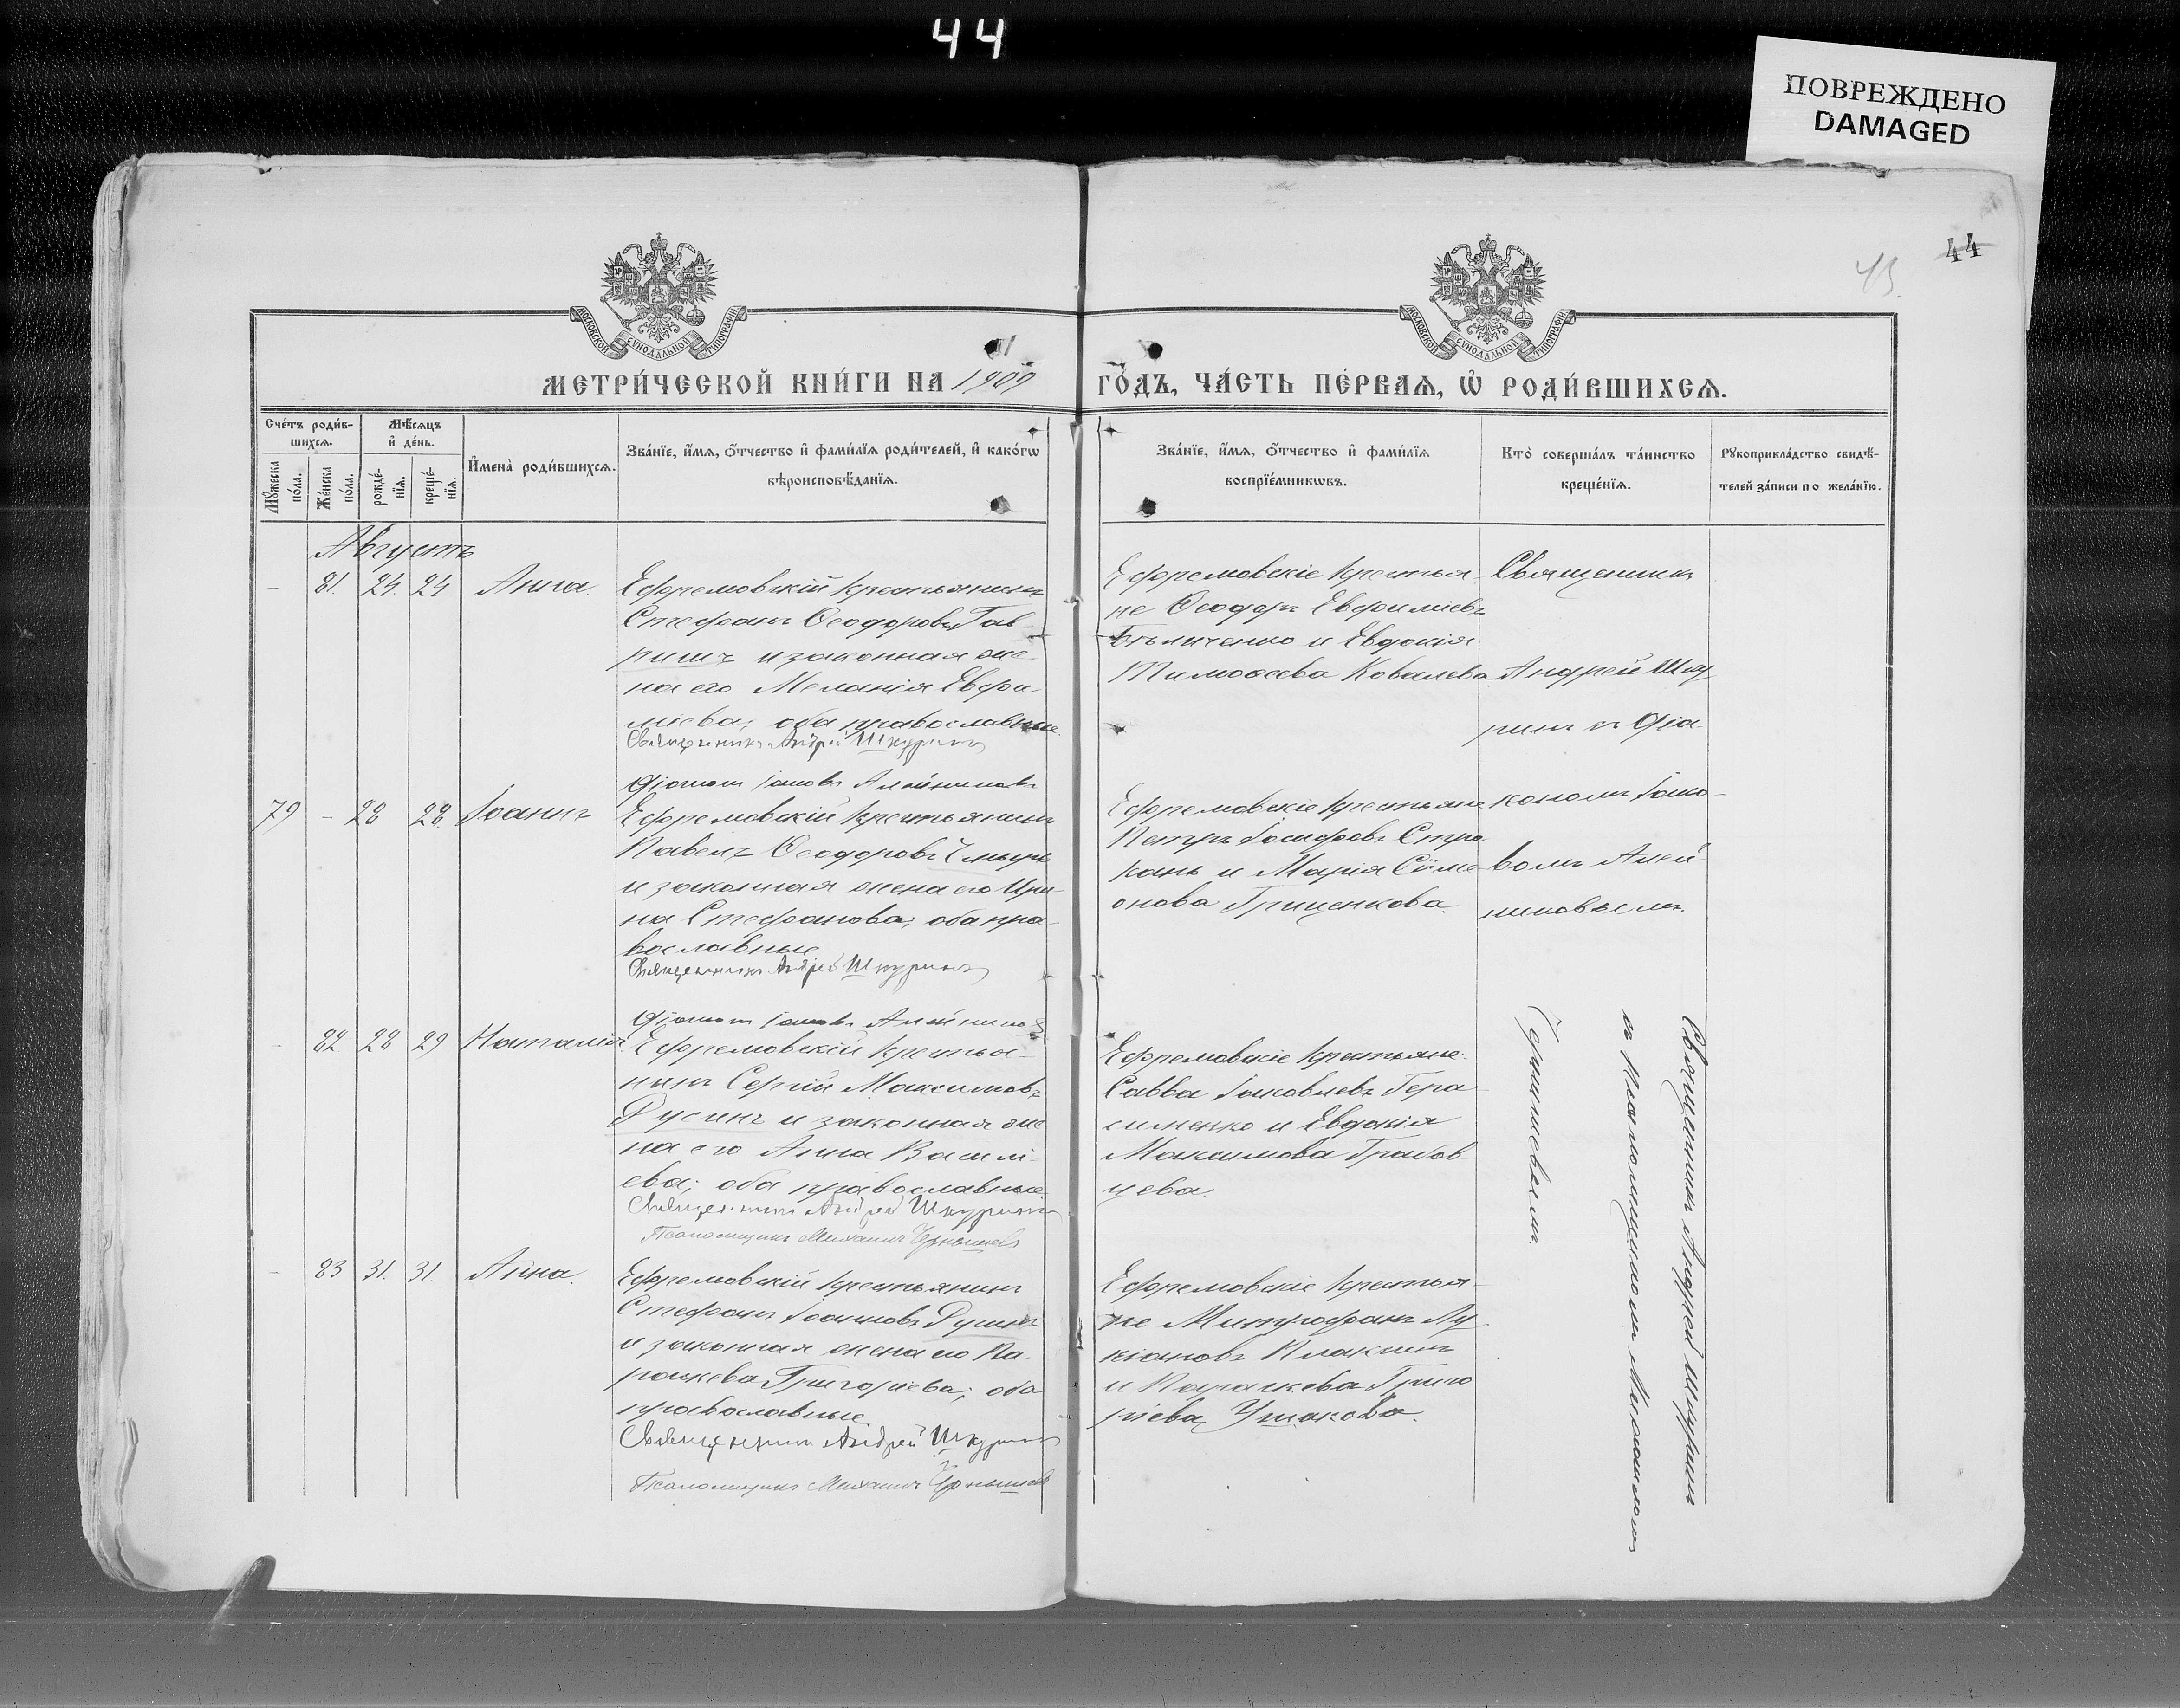 44
ПОВРЕЖДЕНО
DAMAGED
44
43.
МОСКОВСКОЙ СѴНОДАЛЬНОЙ ТИПОГРАФІИ
МОСКОВСКОЙ СѴНОДАЛЬНОЙ ТИПОГРАФІИ
МЕТРИ́ЧЕСКОЙ КНИ́ГИ НА 1909 ГО́ДЪ, ЧА́СТЬ ПЕ́РВАѦ, Ѡ҆ РОДИ́ВШИХСѦ.
Сче́тъ роди́в-
шихсѧ.
Мꙋ́жеска
по́ла.
Же́нска
по́ла.
Мѣ́сѧцъ
и҆ де́нь.
рожде́-
нїѧ.
креще́-
нїѧ.
И҆мена̀ роди́вшихсѧ.
Зва́нїе, и҆́мѧ, ѻ҆́тчество и҆ фами́лїѧ роди́телей, и҆ како́гѡ
вѣроисповѣ́данїѧ.
Зва́нїе, и҆́мѧ, ѻ҆́тчество и҆ фами́лїѧ
воспрїе́мникѡвъ.
Кто̀ соверша́лъ та́инство
креще́нїѧ.
Рꙋкоприкла́дство свидѣ́-
телей за́писи по жела́нїю.
Августъ
- 81. 24. 24 Анна.
Ефремовскій крестьянинъ
Стефанъ Ѳеодоровъ Гав
ришъ и законная же-
на его Меланія Евфи-
міева; оба православные.
Священникъ Андрей Шкуринъ
Діаконъ Іаковъ Алейниковъ
Ефремовскіе крестья-
не Ѳеодоръ Евфиміевъ
Бѣличенко и Евдокія
Тимоѳеева Ковалева.
Священникъ
Андрей Шку
ринъ съ діа-
кономъ Іако-
вомъ Алей
никовымъ.
79 - 28 28. Іоаннъ
Ефремовскій крестьянинъ
Павелъ Ѳеодоровъ
и законная жена его Ири-
на Стефанова; оба пра-
вославные
Священникъ Андрей Шкуринъ
Діаконъ Іаковъ Алейников
Ефремовскіе крестьяне
Петръ Іосифовъ Стро
кань и Марія Сѵме
онова Гриценкова.
- 82 28 29 Наталія.
Ефремовскій крестья-
нинъ Сергій Максимовъ
Русинъ и законная же
на его Анна Василі-
ева; оба православные.
Священникъ Андрей Шкуринъ
Псаломщикъ Михаилъ Чернышевъ
Ефремовскіе крестьяне
Савва Іаковлевъ Гера
сименко и Евдокія
Максимова Грабов
цева.
Священникъ Андрей Шкуринъ
съ псаломщикомъ Михаиломъ
Чернышевымъ.
- 83 31. 31. Анна.
Ефремовскій крестьянинъ
Стефанъ Іоанновъ Русинъ
и законная жена его Па-
раскева Григоріева; оба
православные.
Священникъ Андрей Шкуринъ
Псаломщикъ Михаилъ Чернышевъ
Ефремовскіе крестья-
не Митрофанъ Лу
кіановъ Плаксинъ
и Параскева Григо
ріева Ушакова.